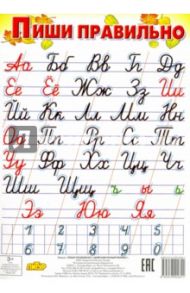 Пиши правильно
Аа Бб Вв Гг Дд
Ее Ёё Жж Зз Ии
Йй Кк Лл Мм Нн
Оо Пп Рр Сс Тт
Уу Фф Хх Цц Чч
Шш Щщ ъ ы ь
Ээ Юю Яя
1 2 3 4 5 6 7 8 9 0
ЕАС